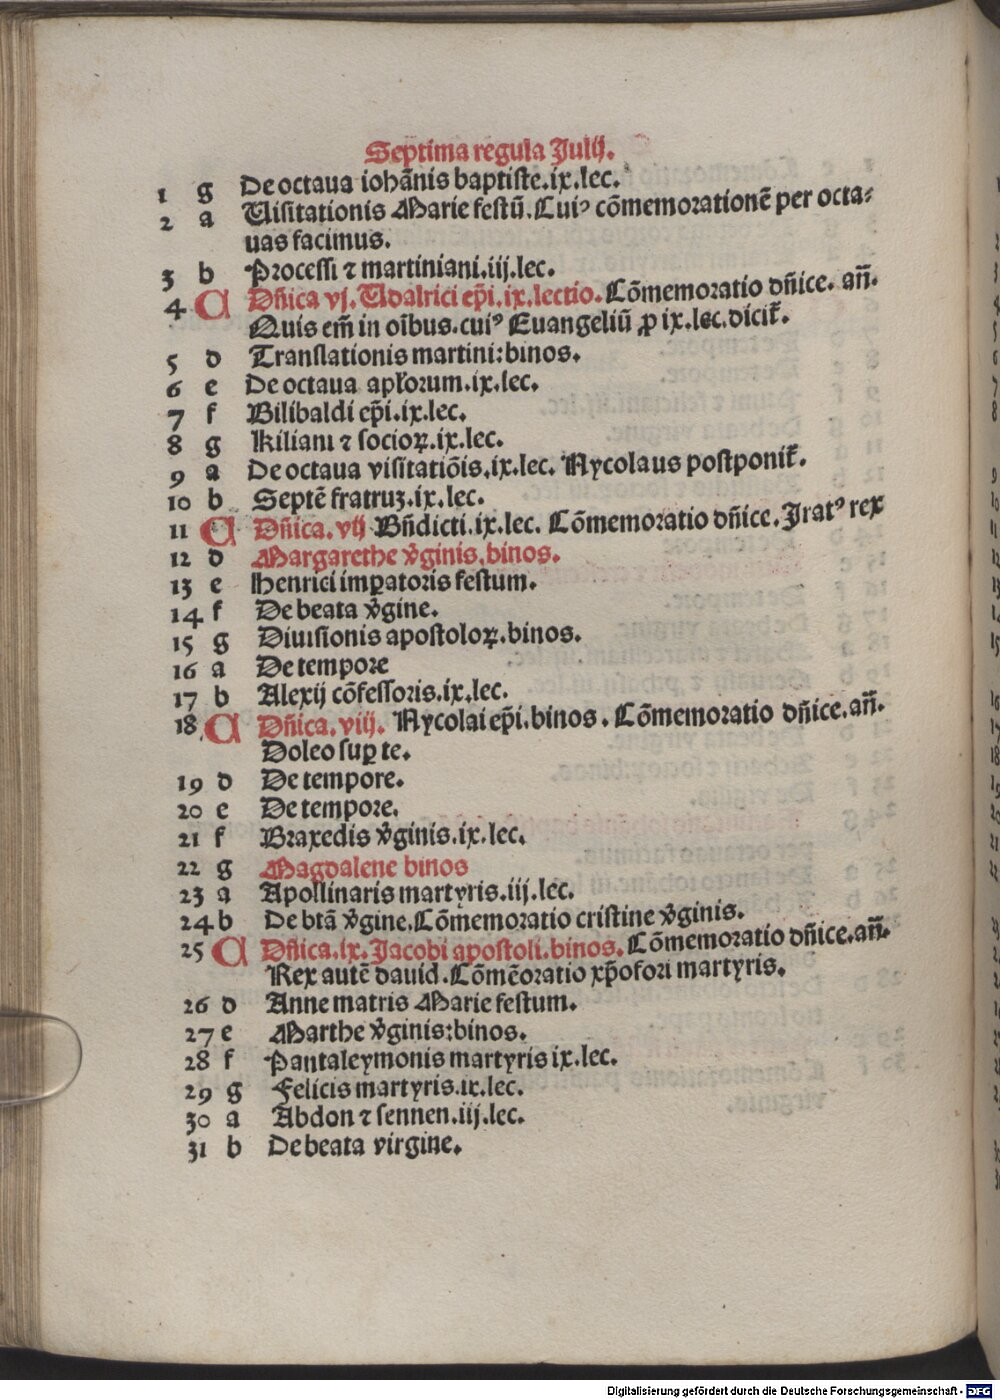 Septima regula Julij.
1 g De octaua iohãnis baptiste.ix.lec.
2 a Uisitationis Marie festũ.Cuiꝰ cõmemorationẽ per octa⸗
uas facimus.
3 b Processi ⁊ martiniani.iij.lec.
4 C Dñica vj. Udalrici ep̃i.ix.lectio. Cõmemoratio dñice. añ.
Quis em̃ in oĩbus.cuiꝰ Euangeliũ ꝓ ix.lec.dicit᷒.
5 d Translationis martini:binos.
6 e De octaua apl̃orum.ix.lec.
7 f Bilibaldi ep̃i.ix.lec.
8 g Kiliani ⁊ socioꝝ.ix.lec.
9 a De octaua visitatiõis.ix.lec. Nycolaus postponit᷒.
10 b Septẽ fratruꝫ.ix.lec.
11 C Dñica.vij Bñdicti.ix.lec. Cõmemoratio dñice.Iratꝰ rex
12 d Margarethe v̓ginis.binos.
13 e Henrici imꝑatoris festum.
14 f De beata v̓gine.
15 g Diuisionis apostoloꝝ.binos.
16 a De tempore
17 b Alexij cõfessoris.ix.lec.
18 C Dñica.viij. Nycolai ep̃i.binos. Cõmemoratio dñice.añ.
Doleo suꝑ te.
19 d De tempore.
20 e De tempore.
21 f Braxedis v̓ginis.ix.lec.
22 g Magdalene binos
23 a Apollinaris martyris.iij.lec.
24 b De btã v̓gine.Cõmemoratio cristine v̓ginis.
25 C Dñica.ix. Jacobi apostoli.binos. Cõmemoratio dñice.añ.
Rex autẽ dauid.Cõmẽoratio xp̃ofori martyris.
26 d Anne matris Marie festum.
27 e Marthe v̓ginis:binos.
28 f Pantaleymonis martyris ix.lec.
29 g Felicis martyris.ix.lec.
30 a Abdon ⁊ sennen.iij.lec.
31 b De beata virgine.
Digitalisierung gefördert durch die Deutsche Forschungsgemeinschaft - DFG